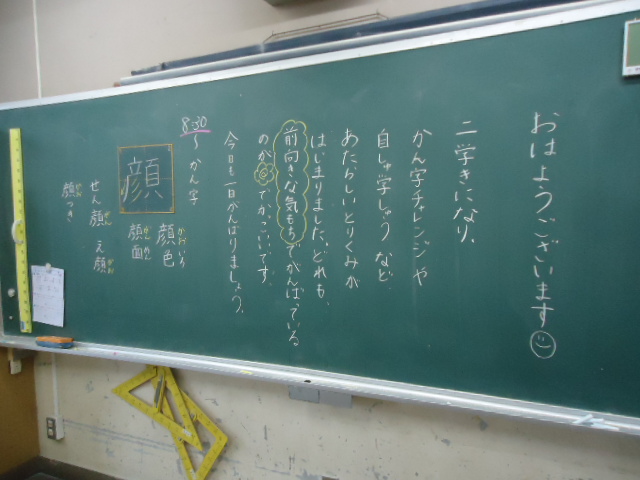 おはようございます
二学きになり、
かん字チャレンジや
自しゅ学しゅうなど
あたらしいとりくみが
はじまりました。どれも、
前向きな気もちでがんばっている
のが とてもかっこいいです。
今日も一日がんばりましょう。
8:30〜かん字
顔
顔色
かおいろ
顔面
がんめん
せん顔
がん
え顔
がお
顔つき